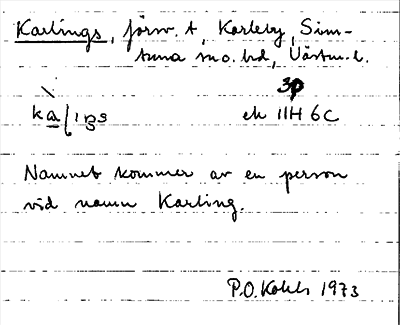 Karlings, förv. t. Karleby, Sim-
tuna sn o. hd, Västm. l.
3p
ek 11H 6C
Namnet kommer av en person
vid namn Karling.
P.O. Kohls 1973